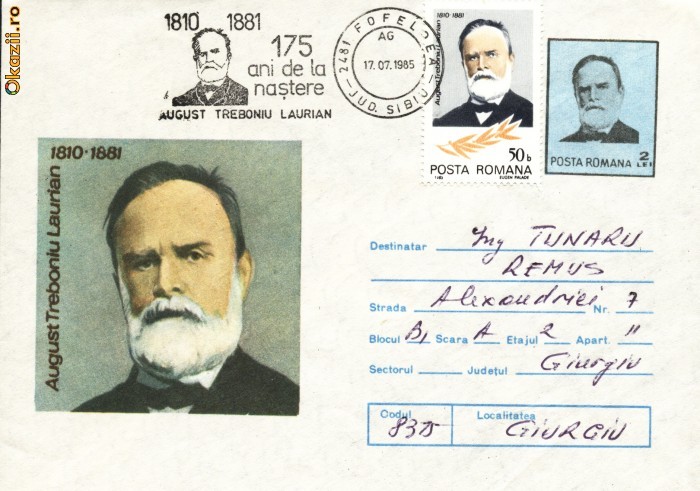 Okazii.ro
1810 1881
175
ani de la
naștere
AUGUST TREBONIU LAURIAN
2481 FOFELDEA
AG
17.07.1985
JUD. SIBIU
1810·1881
August Treboniu Laurian
50 b
POSTA ROMANA
1985 EUGEN PALADE
2
POSTA ROMANA LEI
1810·1881
August Treboniu Laurian
Destinatar Ing TUNARU
REMUS
Strada Alexandriei Nr. 7
Blocul B1 Scara A Etajul 2 Apart. 11
Sectorul Județul Giurgiu
Codul Localitatea
8375 GIURGIU